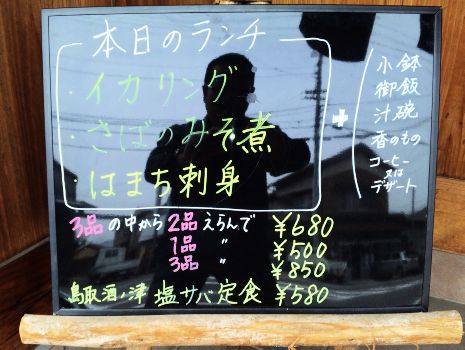 本日のランチ
・イカリング
・さばのみそ煮
はまち刺身
+
小鉢
御飯
汁碗
香のもの
コーヒー
又は
デザート
3品の中から 2品 えらんで ¥680
1品 〃 ¥500
3品 〃 ¥850
鳥取酒ノ津 塩サバ定食 ¥580